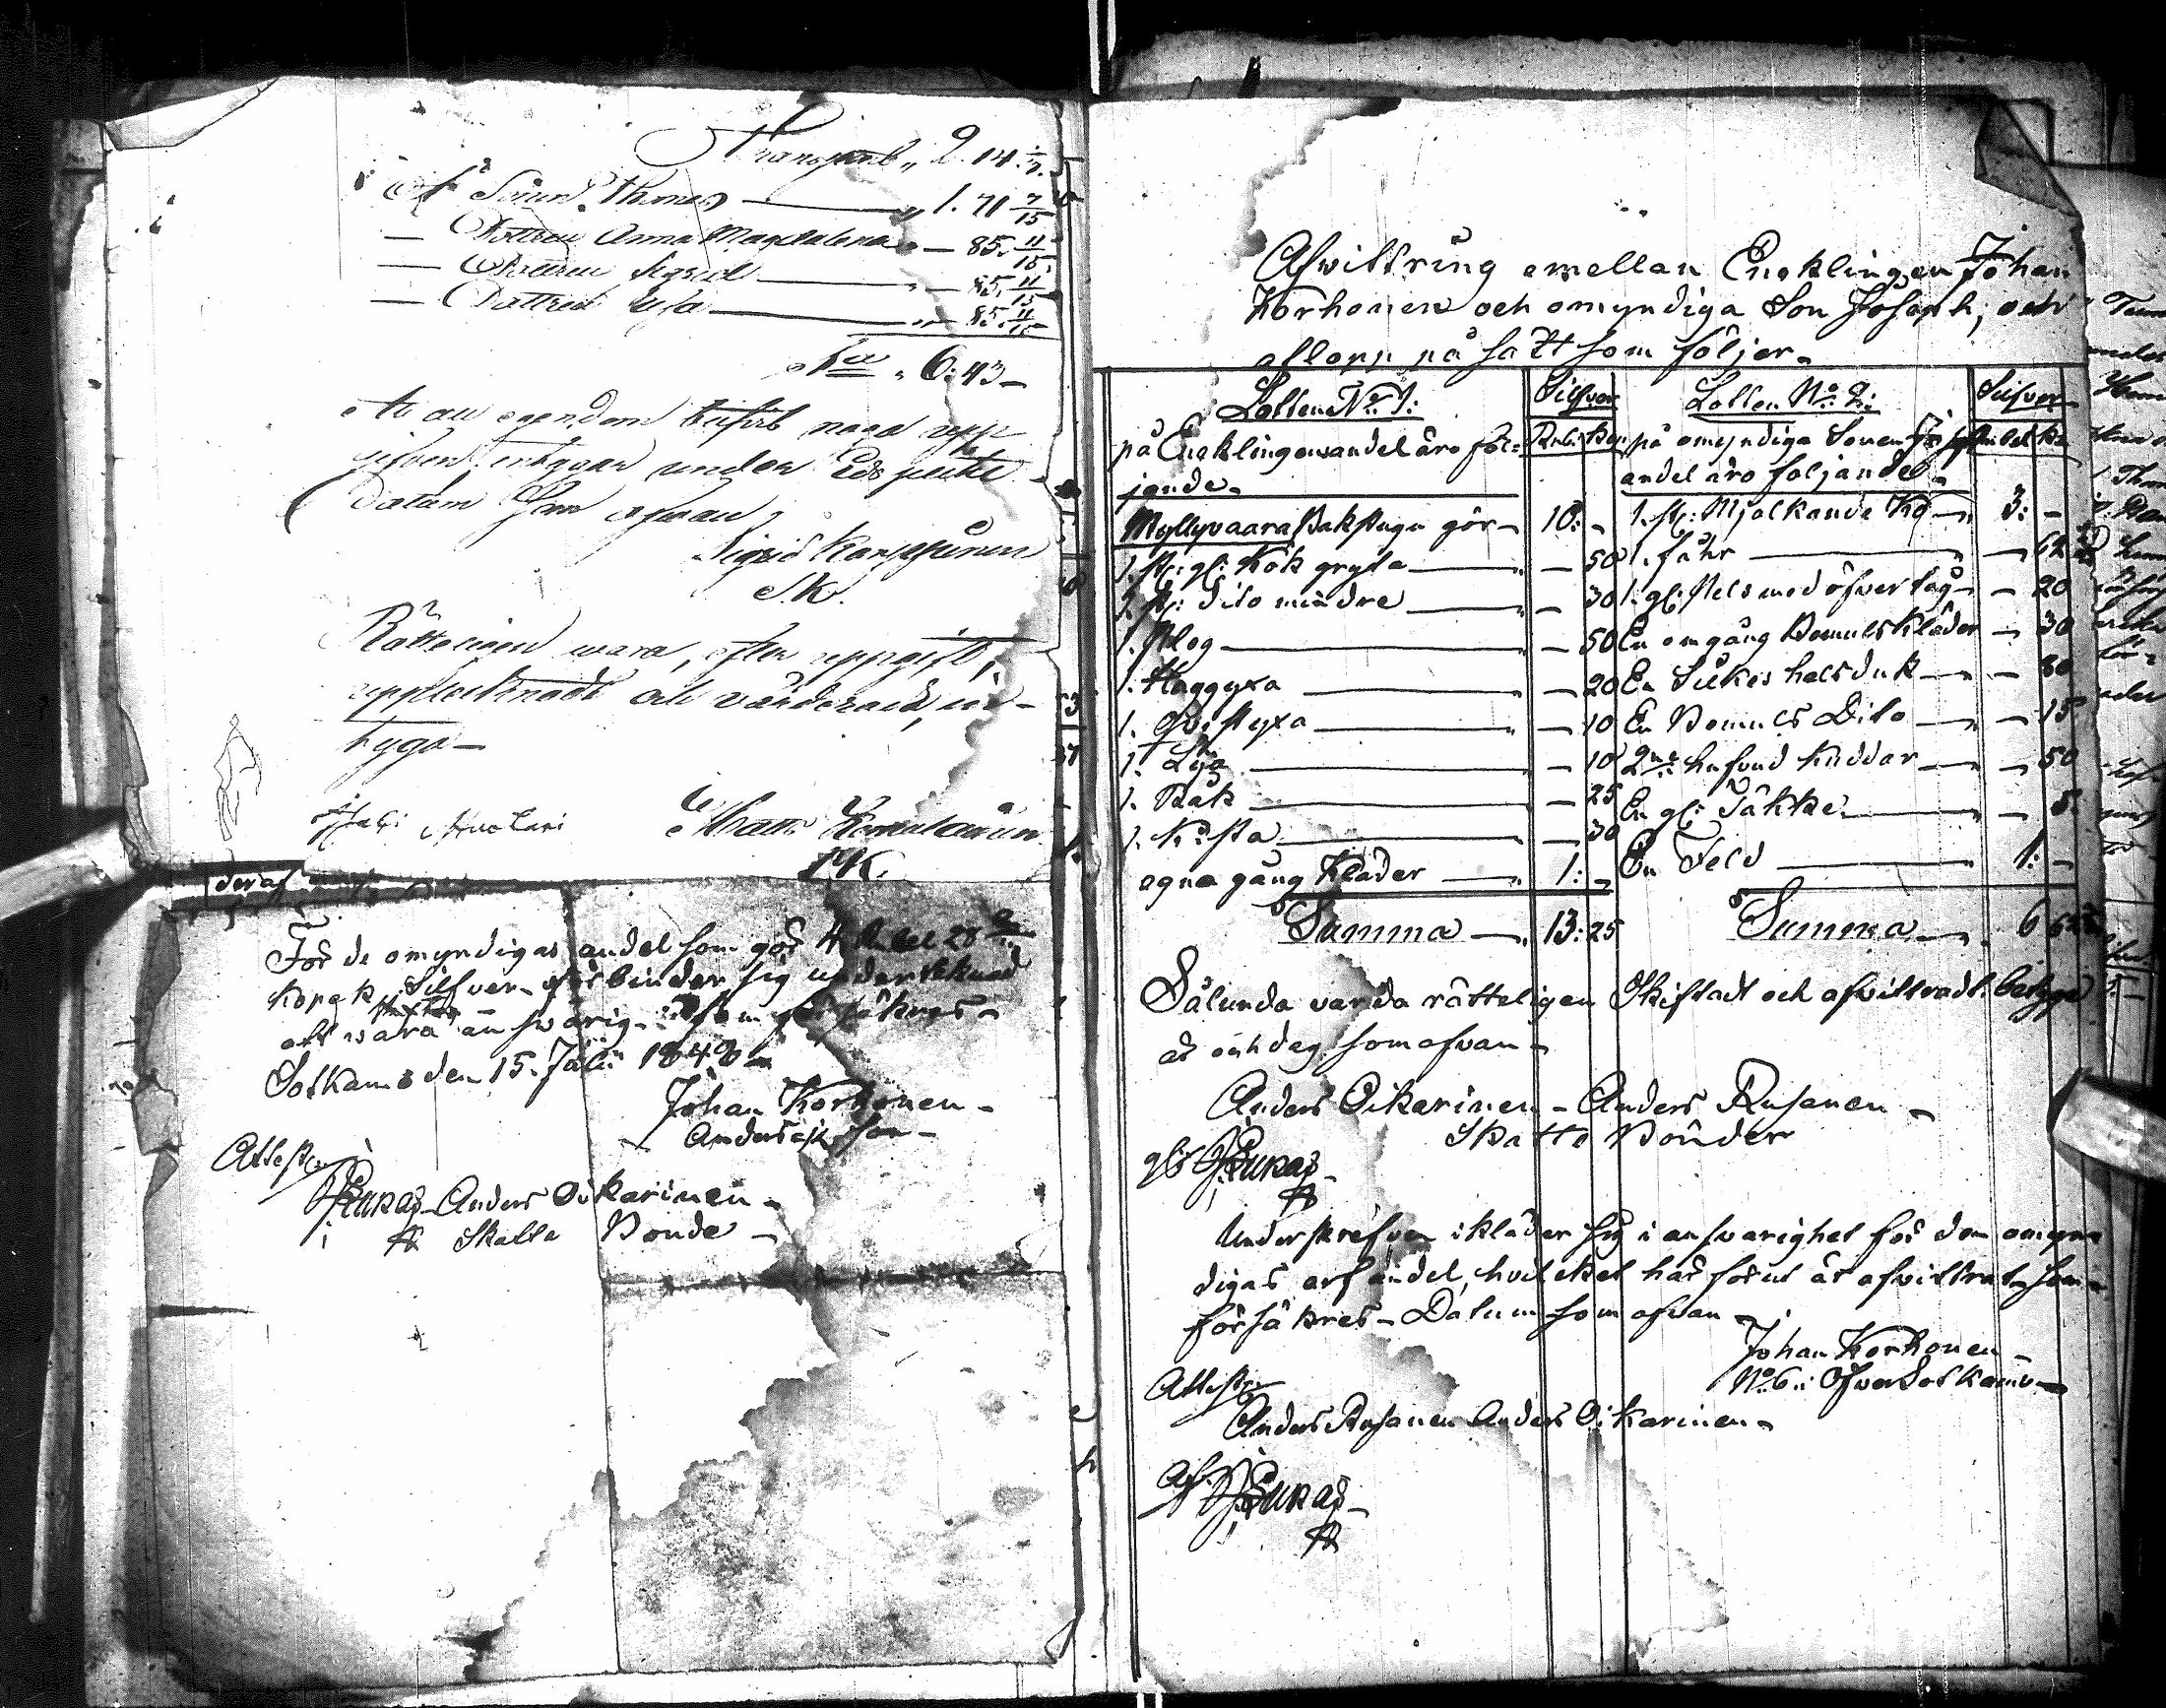 Transport „ 2. 14
Sonen Thomas — „ 1. 71 7/15
— Dottren Anna Magdalena „ — 85. 11/15
— Dottren Sigrid — „ — 85. 11/15
— Dottren Lisa — „ — 85. 11/15
S:a „ 6: 43 —
At all egendom blifvit
gifven intygar under Eds
datum som ofvan
Sigrid
S.K.
Rätteligen vara, efter uppgift,
upptecknadt och värderadt, in-
tyga —
Matts
deraf
För de omyndigas andel som gör 4 Rubel 28
Kopek Silfver förbinder sig undertecknad
att vara ansvarig som försäkras —
Sotkamo den 15. Juli 184
Johan Korhonen —
Andersson —
Attestera
Anders Oikarinen —
Skatte Bonde —
Afvittring emellan Encklingen Johan
Korhonen och omyndiga Son Joseph, och
aflopp på sätt som följer —
Lotten No 1: Silfver Lotten No 2: Silfver
på Encklingens andel äro föl- Rub: Kop på omyndiga Sonen Josephs Rubel Ko
jande — andel äro följande —
Myllyvaara Bakstugu gör — 10: — 1. st: Mjölkande Ko — 3: —
1. st: gl: Kok gryta — 50 1. fåhr — 62
1. st: dito mindre — 30 1. gl: Pels med öfvertåg — 20
1. Plog — 50 En omgång Bomuls Kläder — 30
1. Huggyxa — 20 En Silkes halsduk — 80
1. Qvistyxa — 10 En Bomuls Dito — 15
1. Lya — 10 2ne hufvud kuddar — 50
1. Bak — 25 En gl: Täkke — 5.
1. Kista — 30 En Feld — 1: —
egna gång Kläder — 1: —
Summa — 13: 25 Summa — 6 62
Sålunda varda rätteligen Skiftadt och afvittradt betyga
år och dag som ofvan —
Anders Oikarinen — Anders Rusanen —
Skatte Bönder
Underskrefven ikläder sig i ansvarighet för den omyn
digas arf andel, hvilcket här förut är afvittrat, som
försäkres — Datum som ofvan —
Johan Korhonen —
No 6: Öfver Sotkamo —
Attestera
Anders Rusanen Anders Oikarinen —